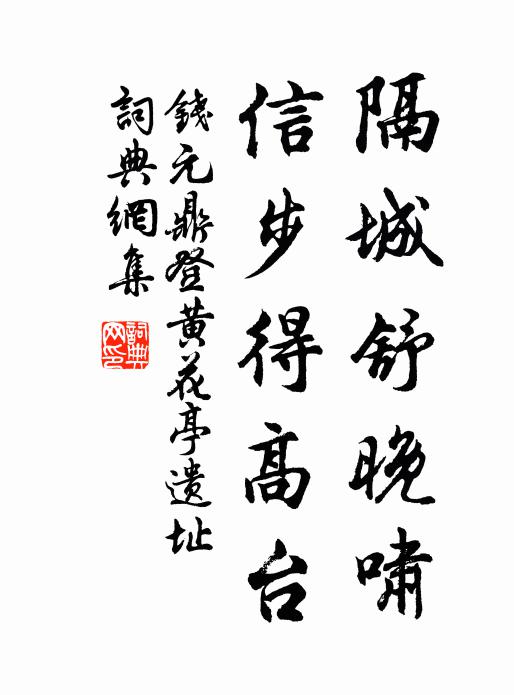 隔城舒晚嘯
信步得高台
錢元鼎登黃花亭遺址
詞典網集
詞典
网印